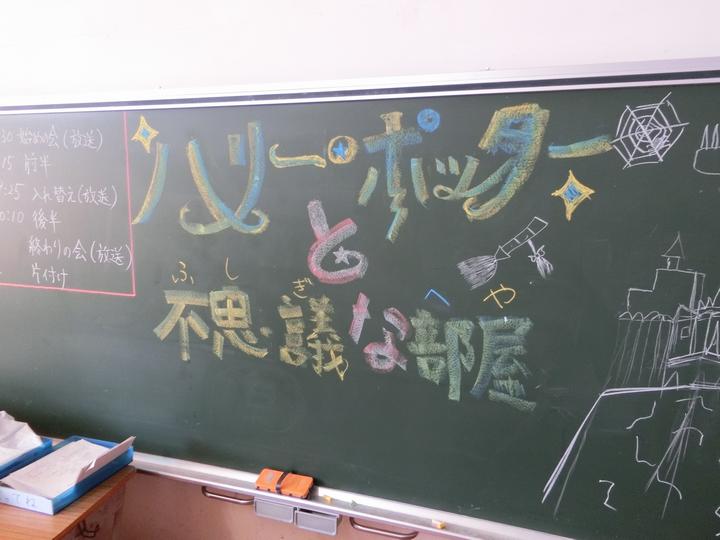 30 始めの会(放送)
15 前半
:25 入れ替え(放送)
0:10 後半
終わりの会(放送)
片付け
ハリー・ポッター
と
ふしぎ へや
不思議な部屋